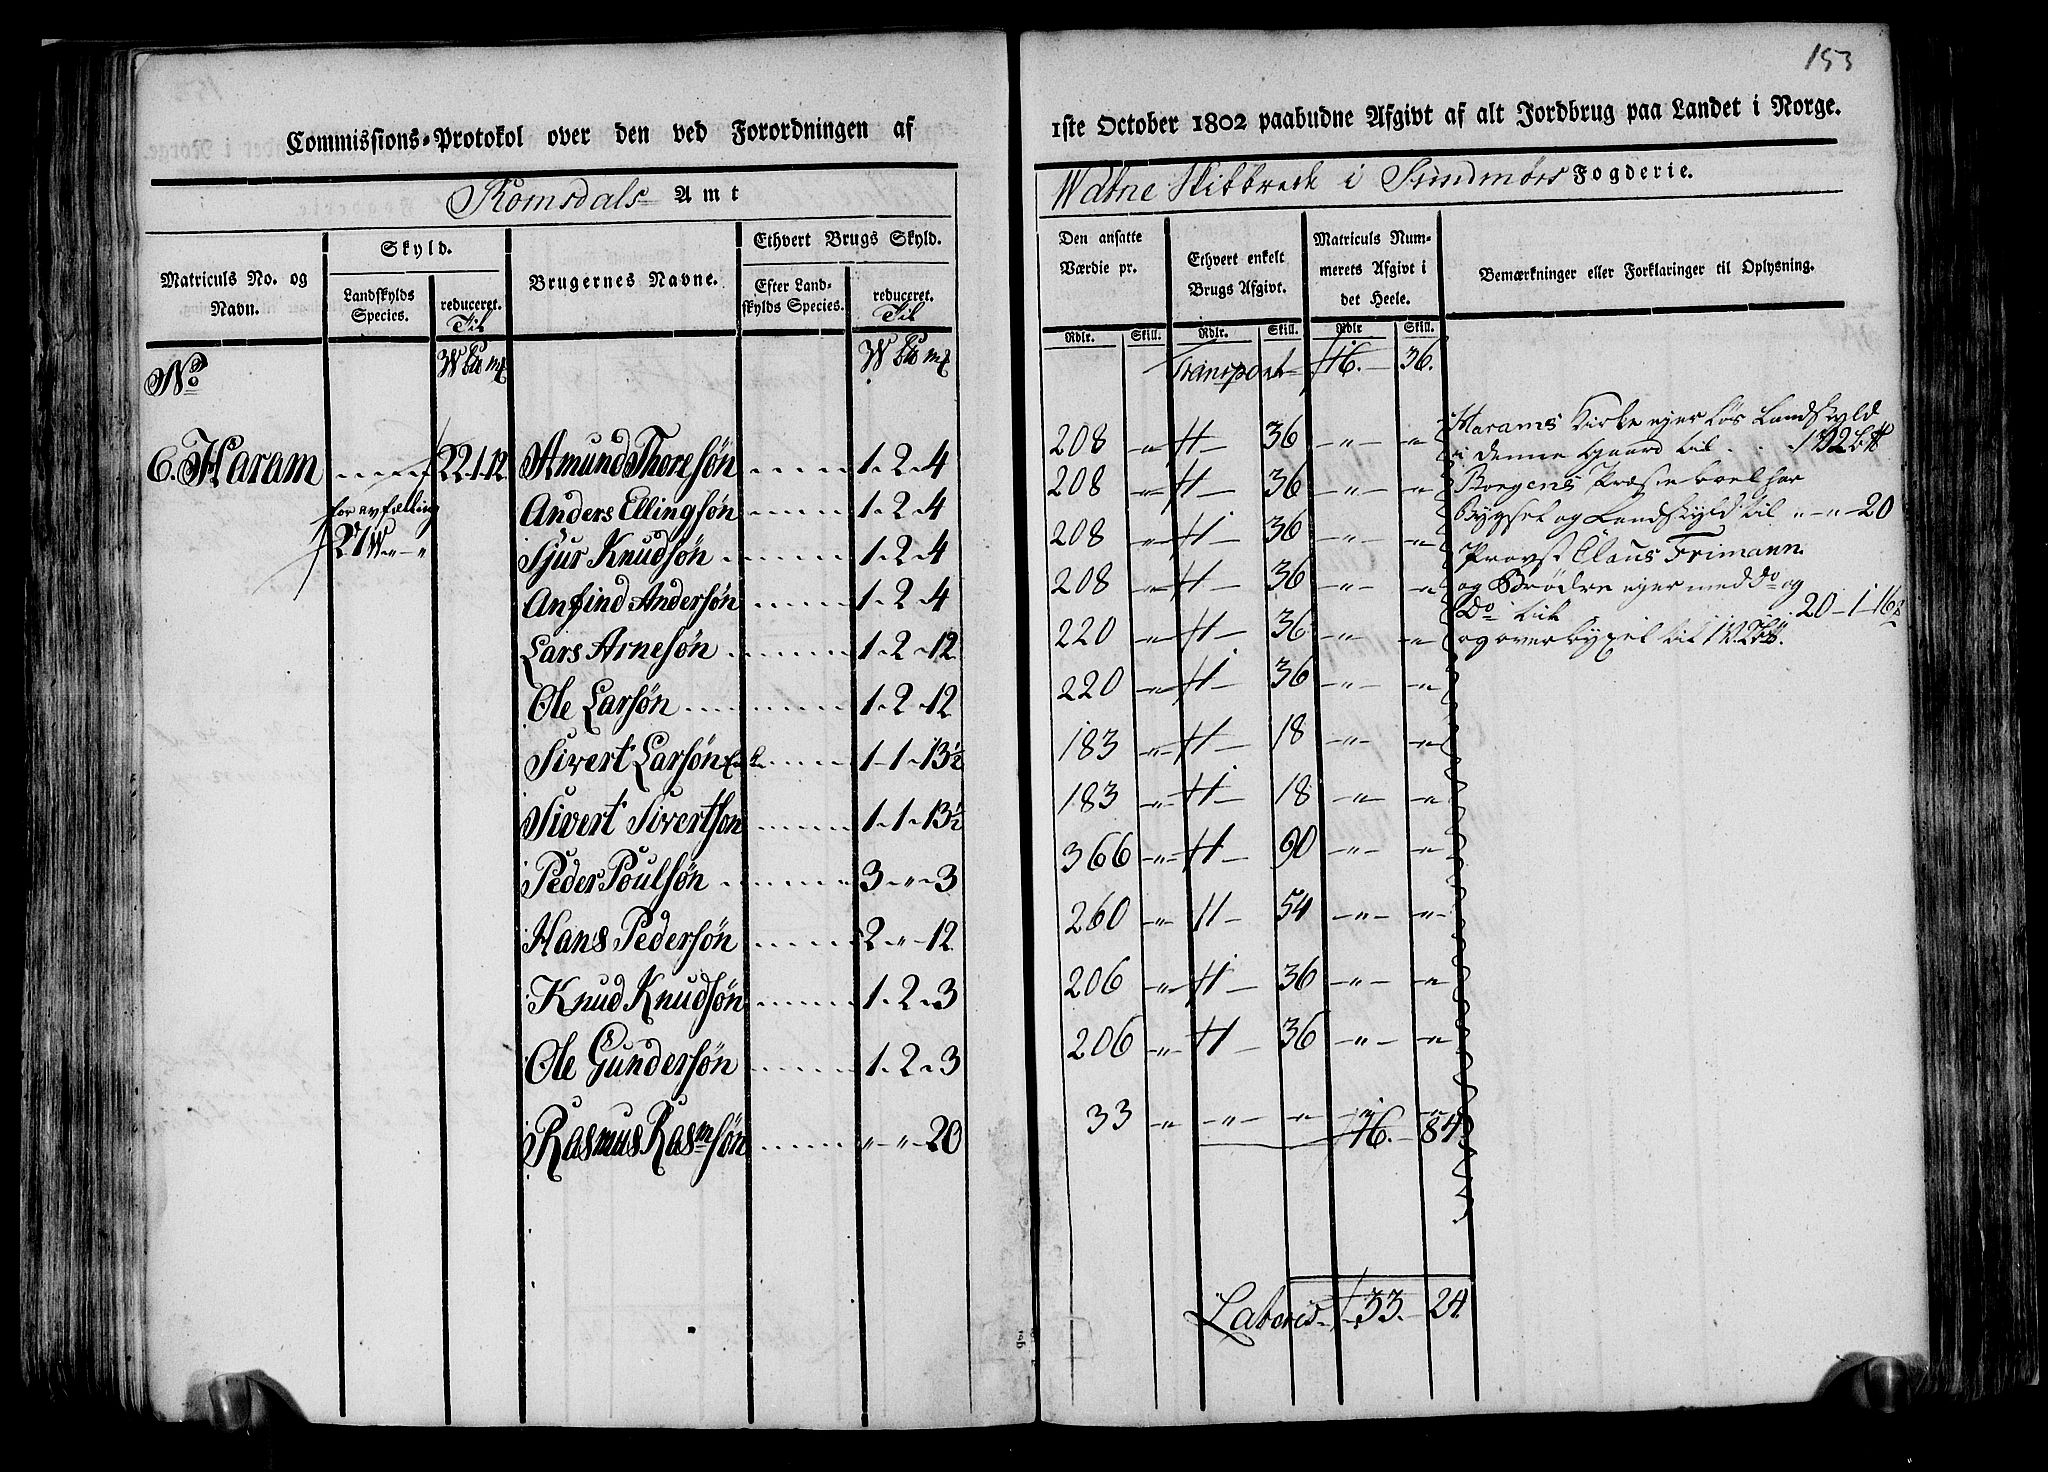 153
Commissions-Protokol over den ved Forordningen af
1ste October 1802 paabudne Afgivt af alt Jordbrug paa Landet i Norge.
Romsdals Amt
Watne Skibbrede i Sundmørs Fogderie.
Matriculs No. og Navn.
Skyld.
Landskylds Species.
reduceret. Til
Brugernes Navne.
Ethvert Brugs Skyld.
Efter Landskylds Species.
reduceret. Til
Den ansatte Værdie pr.
Ethvert enkelt Brugs Afgivt.
Matriculs Nummerets Afgivt i det Heele.
Bemærkninger eller Forklaringer til Oplysning.
Rdlr. Skill. Rdlr. Skill. Rdlr Skill.
No W Pd mk W Pd mk Transport 16. 36.
6. Haram 22-1-12 Amund Thoresøn 1-2-4 208 " 1 36 " "
for avfælling
21 W " - "
Anders Ellingsøn 1-2-4 208 " 1 36 " "
Sjur Knudsøn 1-2-4 208 " 1 36 " "
Anfind Andersøn 1-2-4 208 " 1 36 " "
Lars Arnesøn 1-2-12 220 " 1 36 " "
Ole Larsøn 1-2-12 220 " 1 36 " "
Sivert Larsøn 1-1-13½ 183 " 1 18 " "
Sivert Sivertsøn 1-1-13½ 183 " 1 18 " "
Peder Poulsøn 3-"-3 366 " 1 90 " "
Hans Pedersøn 2-"-12 260 " 1 54 " "
Knud Knudsøn 1-2-3 206 " 1 36 " "
Ole Gundersøn 1-2-3 206 " 1 36 " "
Rasmus Rasmsøn "-"-20 33 " " " 16. 84.
Harams Kirke ejer løs Landskyld
i denne Gaard til
Borgens Præsteboel har
Bygsel og Landskyld til "-"-20
Provst Claus Frimann
og Brødre ejer med do og
Do til 20-1-16
og overbygsel til
Lateris 33. 24.